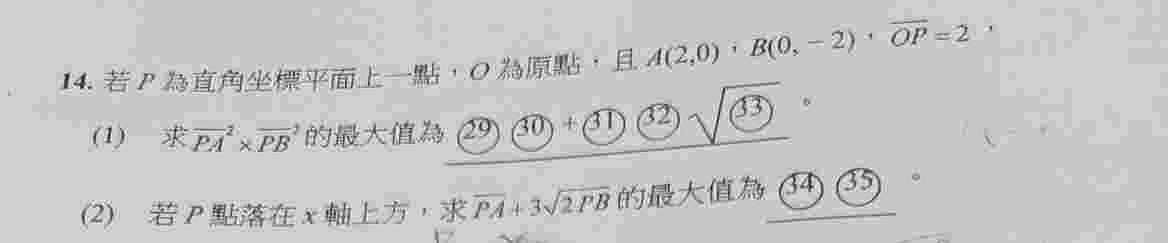 14. 若 P 為直角坐標平面上一點，O 為原點，且 A(2,0)，B(0, − 2)，$\overline{OP}$ = 2，
(1) 求 $\overline{PA}^2 \times \overline{PB}^2$ 的最大值為 ㉙ ㉚ + ㉛ ㉜ √㉝ 。
(2) 若 P 點落在 x 軸上方，求 $\overline{PA} + 3\sqrt{2\overline{PB}}$ 的最大值為 ㉞ ㉟ 。